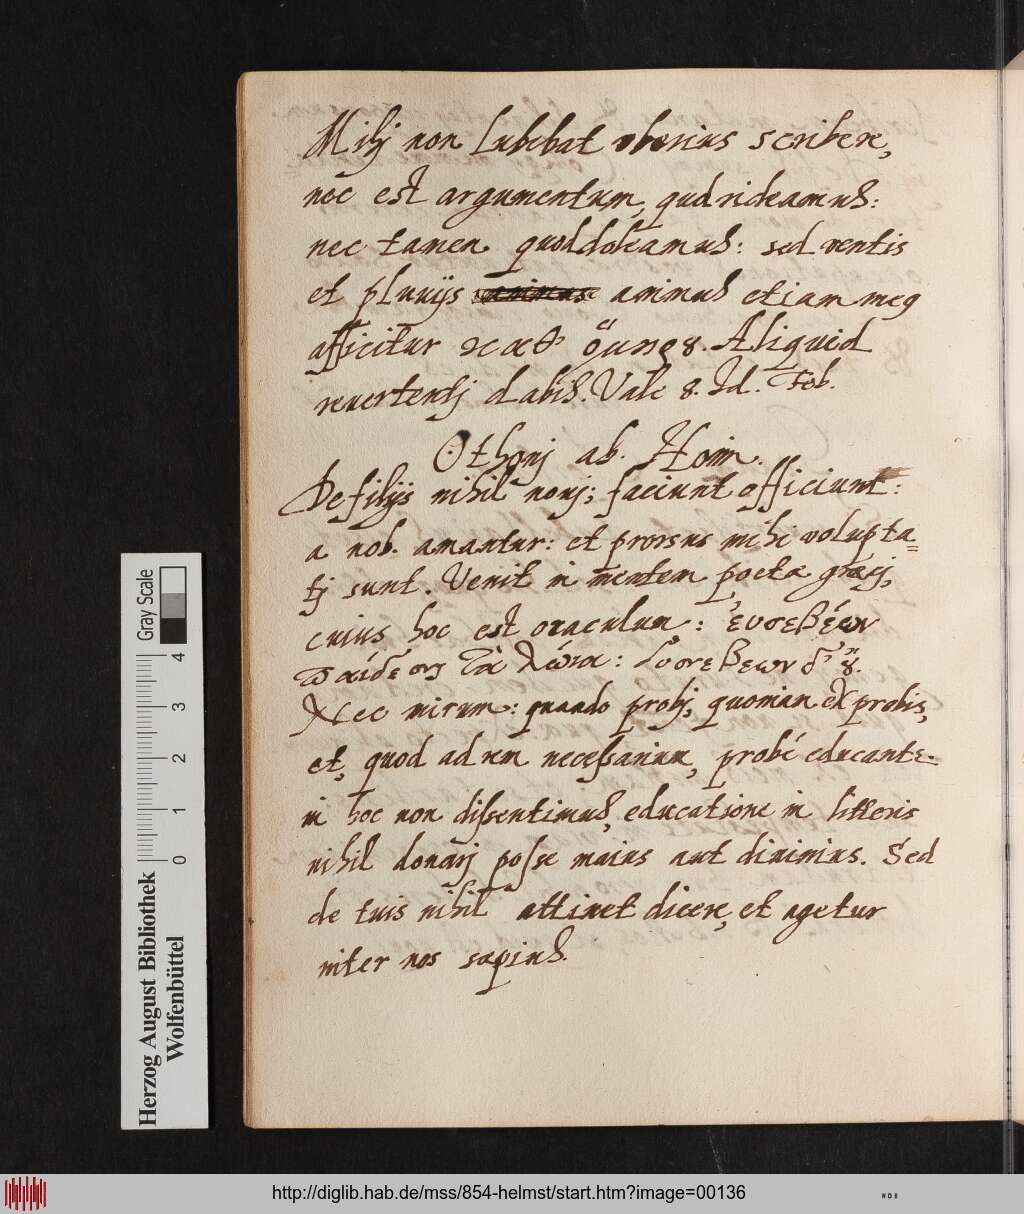 Mihj non Lubebat uberius scribere,
nec est argumentum, qud rideamus:
nec tamen quod doleamus: sed ventis
et pluuijs animus etiam meq
afficitur καθ' Aliquid
reuertentj dabis. Vale 8. Id. Feb.
Othonj ab. Hoim.
De filijs nihil nouj; faciunt officium:
a nob. amantur: et prorsus mihi volupta=
tj sunt. Venit in mentem poetæ græcj,
cuius hoc est oraculum: ἐυσεβέων
παίδεσσι τὰ λώϊα: δυσσεβεων δ' ὄυ.
Nec mirum: quando probj, quoniam ex probis,
et, quod ad rem necessarium, probé educante.
in hoc non dissentimus, educatione in litteris
nihil donarj posse maius aut diuinius. Sed
de tuis nihil attinet dicere, et agetur
inter nos sæpius.
Gray Scale
4
3
2
1
0
Herzog August Bibliothek
Wolfenbüttel
http://diglib.hab.de/mss/854-helmst/start.htm?image=00136
WDB